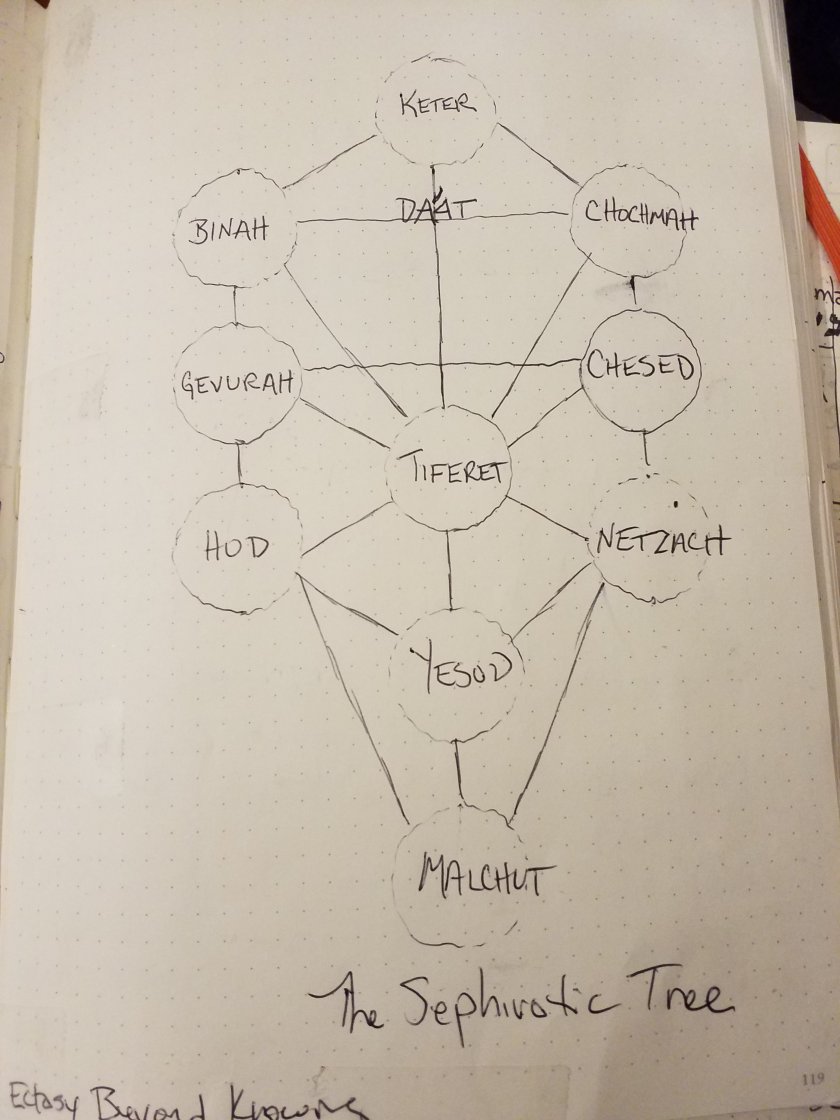 KETER
DAAT
BINAH
CHOCHMAH
GEVURAH
CHESED
TIFERET
HOD
NETZACH
YESOD
MALCHUT
The Sephirotic Tree
119
Ectasy Beyond Knowing